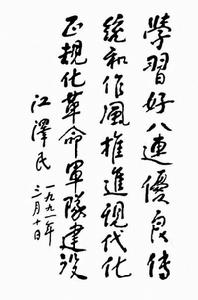 學習好八連優良傳
統和作風推進現代化
正規化革命軍隊建設
江澤民
一九九一年
三月十日